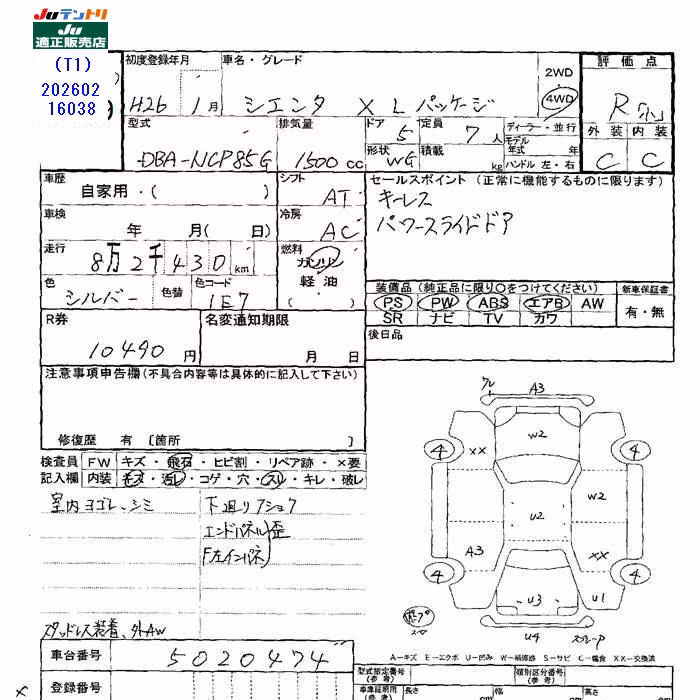 JUテントリ
JU
適正販売店
(T1)
202602
16038
初度登録年月
H26 1月
車名・グレード
シエンタ X Lパッケージ
2WD
4WD
評価点
R
外装 内装
C C
型式
DBA-NCP85G
排気量
1500 cc
ドア 5
形状 WG
定員 7人
積載 kg
ディーラー・並行
モデル年式 年
ハンドル 左・右
車歴
自家用・( )
シフト
AT
車検
年 月( 日)
冷房
AC
走行
8万2千430km
燃料
ガソリン
軽油
( )
色
シルバー
色替
色コード
1E7
セールスポイント(正常に機能するものに限ります)
キーレス
パワースライドドア
装備品(純正品に限り○をつけてください)
PS PW ABS エアB AW
SR ナビ TV カワ
新車保証書
有・無
後日品
R券
10490円
名変通知期限
月 日
注意事項申告欄(不具合内容等は具体的に記入して下さい)
修復歴 有 [箇所 ]
検査員 FW キズ・飛石・ヒビ割・リペア跡・×要
記入欄 内装 キズ・汚レ・コゲ・穴・スレ・キレ・破レ
室内ヨゴレ、シミ
下廻りフショク
エンドパネル歪
F左インパネ
スタッドレス装着、外AW
A3
W2
XX
4 4
W2
U2
A3
XX
4 4
U3
U1
U4
スペア
A-キズ E-エクボ U-凹み W-補修跡 S-サビ C-腐食 XX-交換済
車台番号
5020474
登録番号
型式指定番号
(参考)
類別区分番号
(参考)
車庫証明用
(参考)
長さ
高さ
×